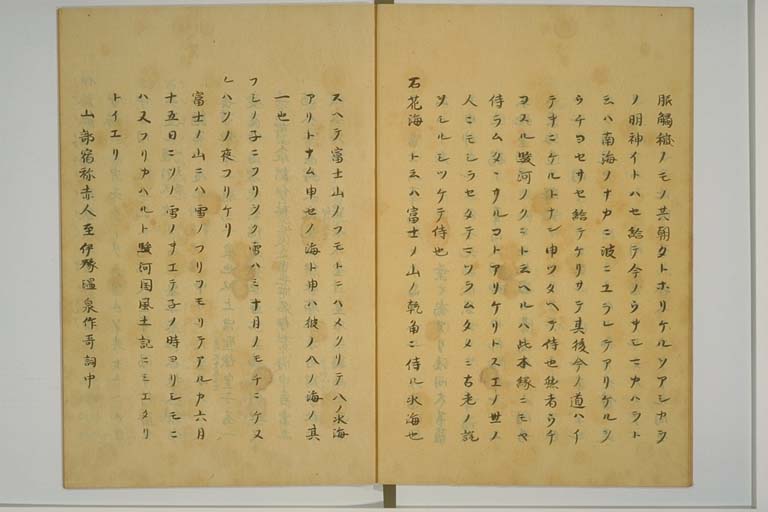 服觸穢ノモノ其朝夕トホリケルソアシカラシ
ノ明神イトハセ給テ今ノウサモニカハラト
云ハ南海ノナカニ波ニユラレテアリケルヲ
ウチヨセサセ給テケリサテ其後今ノ道ハイ
テキニケルトナン申ツタヘテ侍也然者ウチ
ヨスル駿河ノクニト云ヘルハ此本縁ニモヤ
侍ラムタヽサルコトアリケリトスエノ世ノ
人ニモシラセタテマツラムタメニ古老ノ説
ヲシルシツケテ侍也
石花海 ト云ハ富士ノ山ノ乾角ニ侍ル水海也
スヘテ富士山ノフモトニハメクリテ八ノ水海
アリトナム申セノ海ト申ハ彼ノ八ノ海ノ其
一也
フシノ子ニフリヲク雪ハミナ月ノモチニケヌ
レハソノ夜フリケリ
富士ノ山ニハ雪ノフリツモリテアルカ六月
十五日ニソノ雪ノキエテ子ノ時ヨリシモニ
ハ又フリカハルト駿河国風土記ニミエタリ
トイエリ
山部宿祢赤人至伊豫温泉作哥詞中